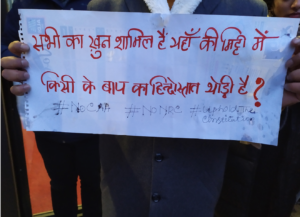 सभी का खून शामिल है यहाँ की मिट्टी में
किसी के बाप का हिन्दोस्तान थोड़ी है ?
#NoCAA #NoNRC